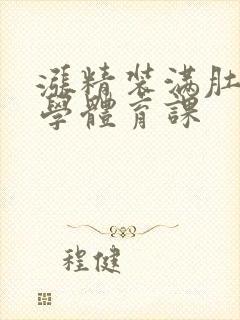 漲精装满肚
學體育課
程健